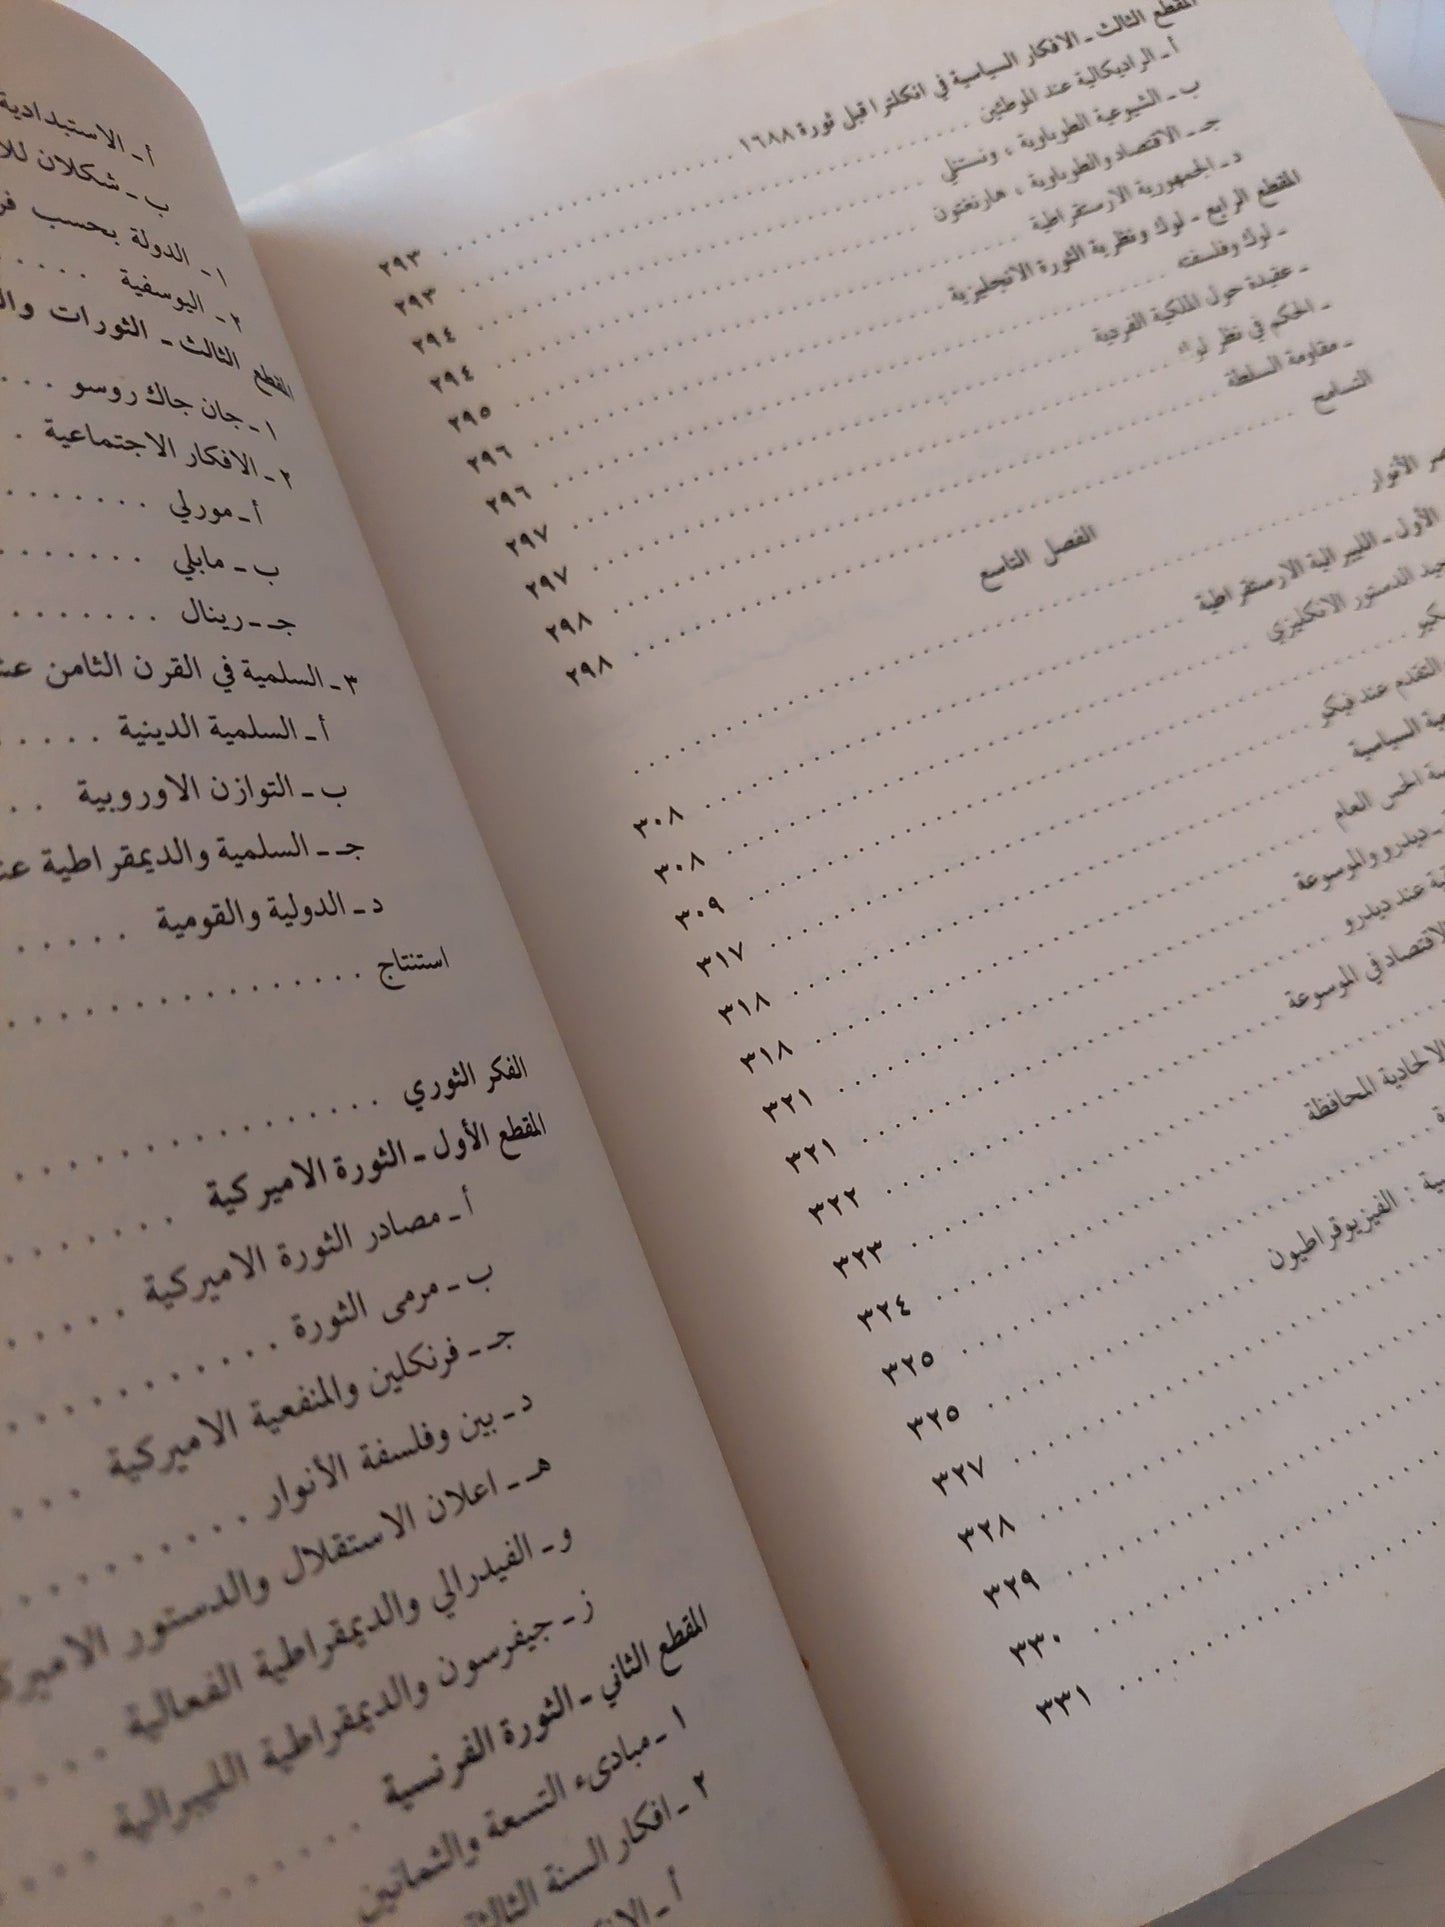 المقطع الثالث ـ الافكار السياسية في انكلترا قبل ثورة ١٦٨٨ ٢٩٣
أ ـ الراديكالية عند الموطئين ٢٩٣
ب ـ الشيوعية الطوباوية ، ونستنلي ٢٩٤
جـ ـ الاقتصاد والطوباوية ، هارنغتون ٢٩٤
د ـ الجمهورية الارستقراطية ٢٩٥
المقطع الرابع ـ لوك ونظرية الثورة الانجليزية ٢٩٦
ـ لوك وفلسفته ٢٩٦
ـ عقيدة حول الملكية الفردية ٢٩٧
ـ الحكم في نظر لوك ٢٩٧
ـ مقاومة السلطة ٢٩٨
التسامح ٢٩٨
الفصل التاسع
الأنوار ٣٠٨
الأول ـ الليبرالية الارستقراطية ٣٠٨
الدستور الانكليزي ٣٠٩
٣١٧
التقدم عند فيكو ٣١٨
السياسية ٣١٨
الحس العام ٣٢١
ـ ديدرو والموسوعة ٣٢١
عند ديدرو ٣٢٢
الاقتصاد في الموسوعة ٣٢٣
٣٢٤
الالحادية المحافظة ٣٢٥
٣٢٥
: الفيزيوقراطيون ٣٢٧
٣٢٨
٣٢٩
٣٣٠
٣٣١
أ ـ الاستبدادية
ب ـ شكلان
١ ـ الدولة بحسب
٢ ـ اليوسفية
المقطع الثالث ـ الثورات
١ ـ جان جاك روسو
٢ ـ الافكار الاجتماعية
أ ـ مورلي
ب ـ مابلي
جـ ـ رينال
٣ ـ السلمية في القرن الثامن
أ ـ السلمية الدينية
ب ـ التوازن الاوروبية
جـ ـ السلمية والديمقراطية
د ـ الدولية والقومية
استنتاج
الفكر الثوري
المقطع الأول ـ الثورة الاميركية
أ ـ مصادر الثورة الاميركية
ب ـ مرمى الثورة
جـ ـ فرنكلين والمنفعية الاميركية
د ـ بين وفلسفة الأنوار
هـ ـ اعلان الاستقلال والدستور
و ـ الفيدرالي والديمقراطية الفعالية
ز ـ جيفرسون والديمقراطية الليبرالية
المقطع الثاني ـ الثورة الفرنسية
١ ـ مبادىء التسعة والثمانين
٢ ـ افكار السنة
أ ـ